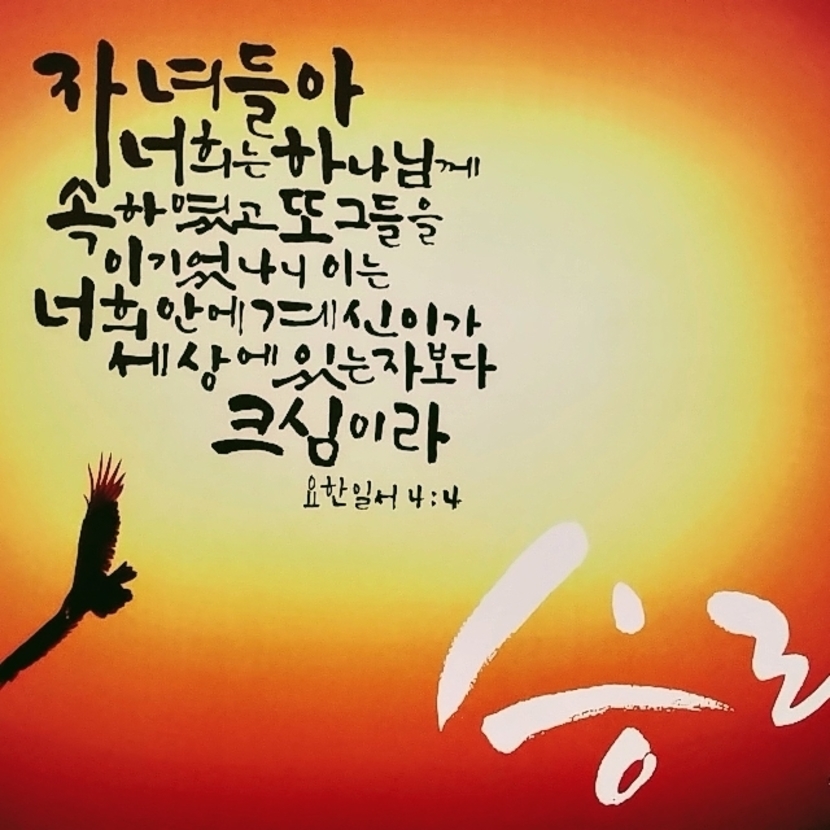 자녀들아
너희는 하나님께
속하였고 또 그들을
이기었나니 이는
너희 안에 계신 이가
세상에 있는 자보다
크심이라
요한일서 4:4
승